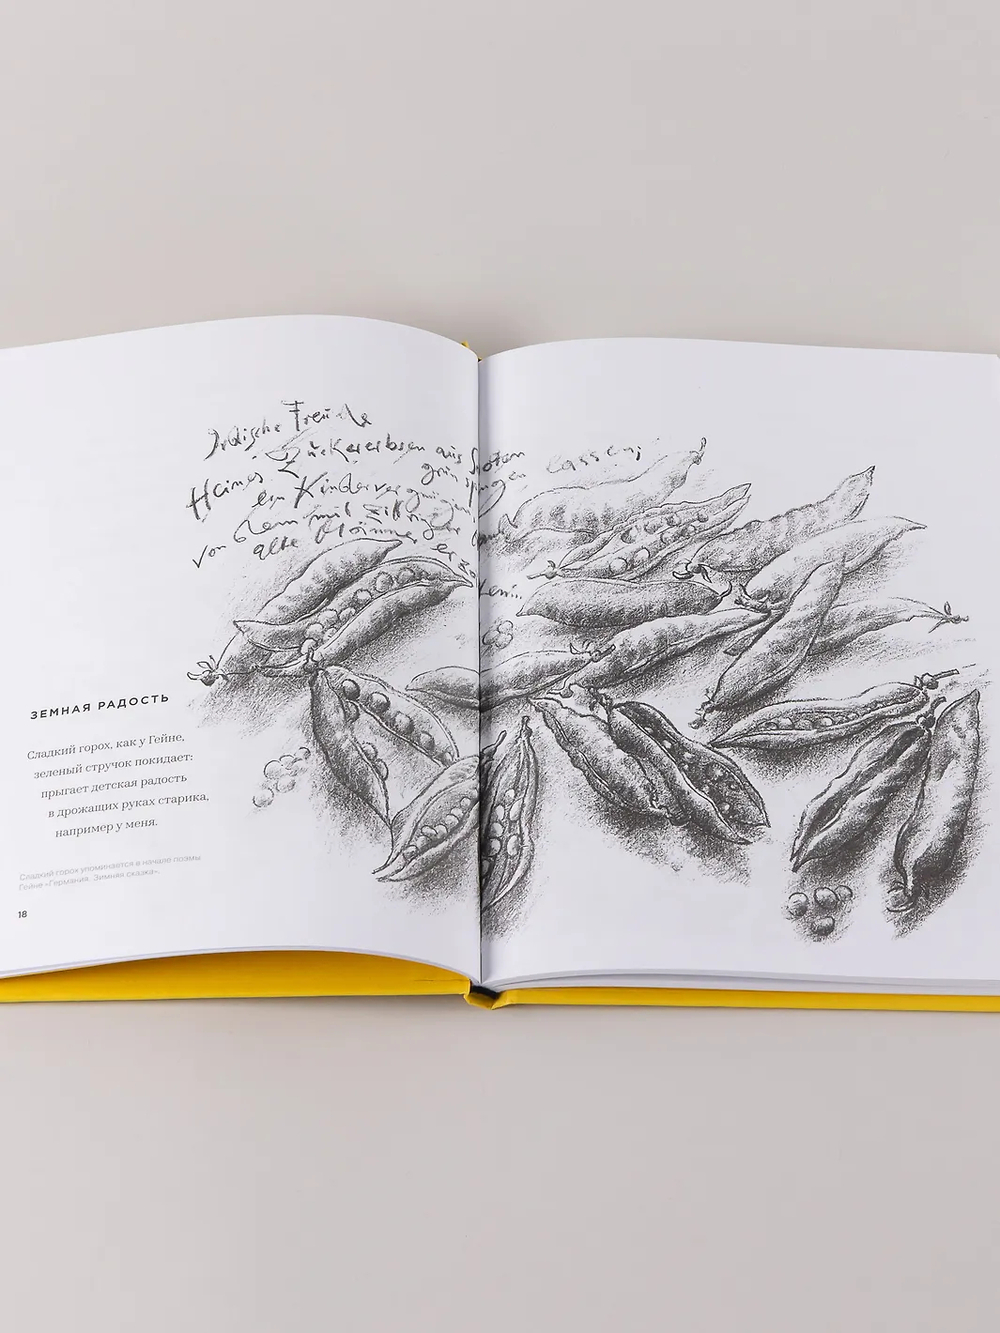 Irdische Freude
Heines Zuckererbsen aus Schoten
grün springen lassen;
ein Kindervergnügen,
von dem mit zittriger Hand
alte Männer
ЗЕМНАЯ РАДОСТЬ
Сладкий горох, как у Гейне,
зеленый стручок покидает:
прыгает детская радость
в дрожащих руках старика,
например у меня.
Сладкий горох упоминается в начале поэмы
Гейне «Германия. Зимняя сказка».
18